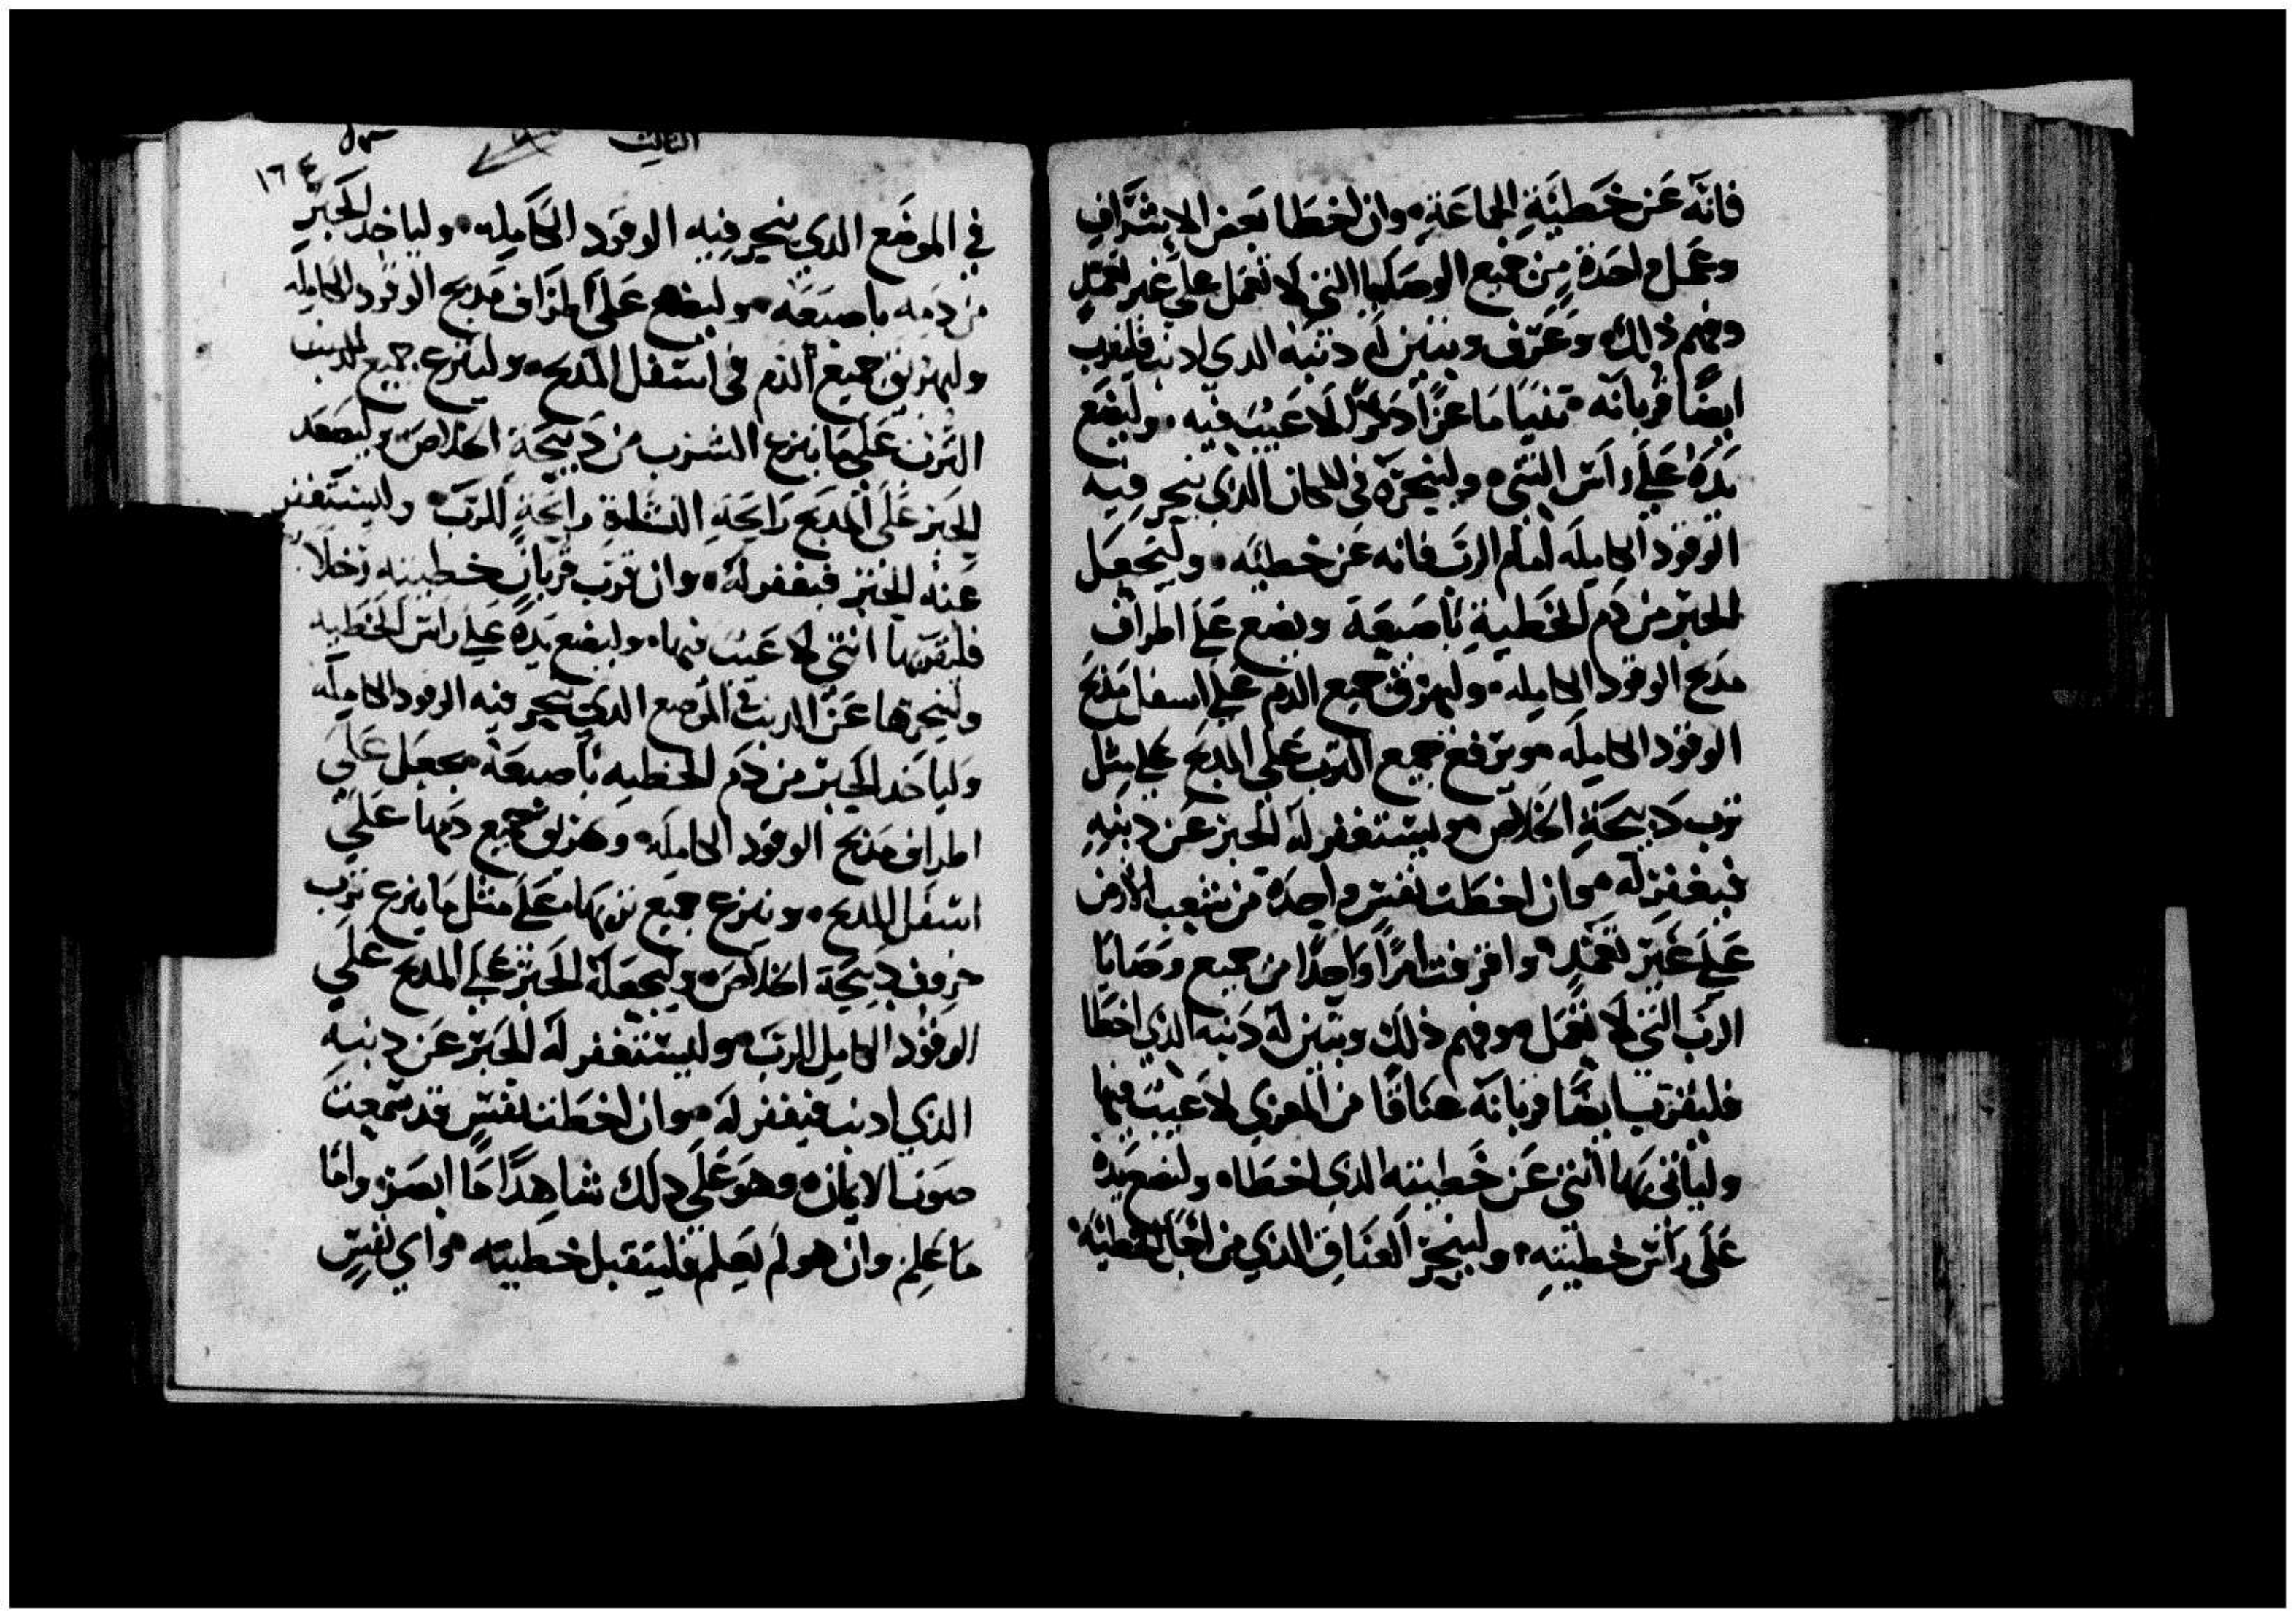 فانه عَن خَطيَّةِ الجماعَةِ. وان اخطا بَعض الاشراف
وعَمل واحدة مِن جميع الوصَايا التي لا تعمل على غير تعمدٍ
وفهم ذالك وعَرف وتبين له دنبه الدي ادنب فليقرب
ايضًا قربانه تنيَا مَاعزًا دَكرًا لا عَيبَ فيه. وليضَع
يَدَهُ عَلَي راس التني. ولينحَره في المكان الذي ينحر فيه
الوقود الكامِله امام الرب فانه عَن خطيَّه. وليَجعَل
الحبر من دَم الخَطيةِ باصبَعَه ويضع عَلَي اطراف
مدبح الوقود الكامِله. وليهرق جميع الدم عَلَي اسفل مدبَح
الوقود الكامِله. ويرفع جميع الترب عَلَى المدبَح علي مثل
ترب دَبيحَةِ الخَلاص. وليستغفر له الحَبر عَن دنبِهِ
فيغفر له. وان اخطَت نفس واحِدَة من شعب الارض
عَلَي غَير تعَمّدٍ. واقترفت امرًا وَاحِدًا من جميع وَصَايَا
الرب التي لا تعمَل. وفهم ذلك وتبين له دَنبه الذي اخطَا
فليقرب ايضًا قربانَه عنَاقًا من المعزي لا عَيبَ فيها
وليَاتي بهَا انتي عَن خَطيته الذي اخطَاه. وليضع يَدَه
عَلَى راس خطيتِهِ. ولينحَر العنَاق الذي من اجل الخطيَّة
الثالث
١٦٤
في الموضَع الدي ينحر فِيه الوقود الكَامِله. ولياخد الحَبر
من دَمه باصبَعَه. وليضع عَلَى اطرَاف مَدبَح الوقود الكامِله
وليهرق جميع الدَم في اسفل المدبح. ولينزع جميع
الترب عَلَى مَا ينزع الترب من دَبيحَة الخلاصَ. وليصعَد
الحَبر عَلَى المدبَح رَايحَة رايحَةٍ للرَب. وليستغفر
عَنه الحَبر فيغفر له. وان قرب قربان خطيته رَخلاً
فليقربها انتي لا عَيبَ فيها. وليضع يَدَهُ عَلَي رَاس الخَطيه
ولينحرها عَن الدنب في الموضع الدي ينحر فيه الوقود الكامِله
وَلياخد الحَبر من دَم الخطيه باصبعَه. يجعَل عَلَي
اطراف مَدبح الوقود الكامِله. وهرق جميع دَمها عَلَي
اسفل المدبح. وينزع جميع تربهَا عَلَي مثل مَا ينزع ترب
خروف دَبيحَة الخَلاصَ. وليجعَله الحَبر عَلَي المدبح عَلَي
الوقود الكامِل للرب. وليستغفر له الحَبر عَن دنبهِ
الذي ادنب فيغفر له. وان اخطَت نفس قد سَمعت
صَوت الايمان. وهوَ عَلَي دلك شاهِدًا مَا ابصَر. وامَا
مَا عَلِم. وان هو لم يَعلم فليَتقبل خطيته. واي نفسٍ